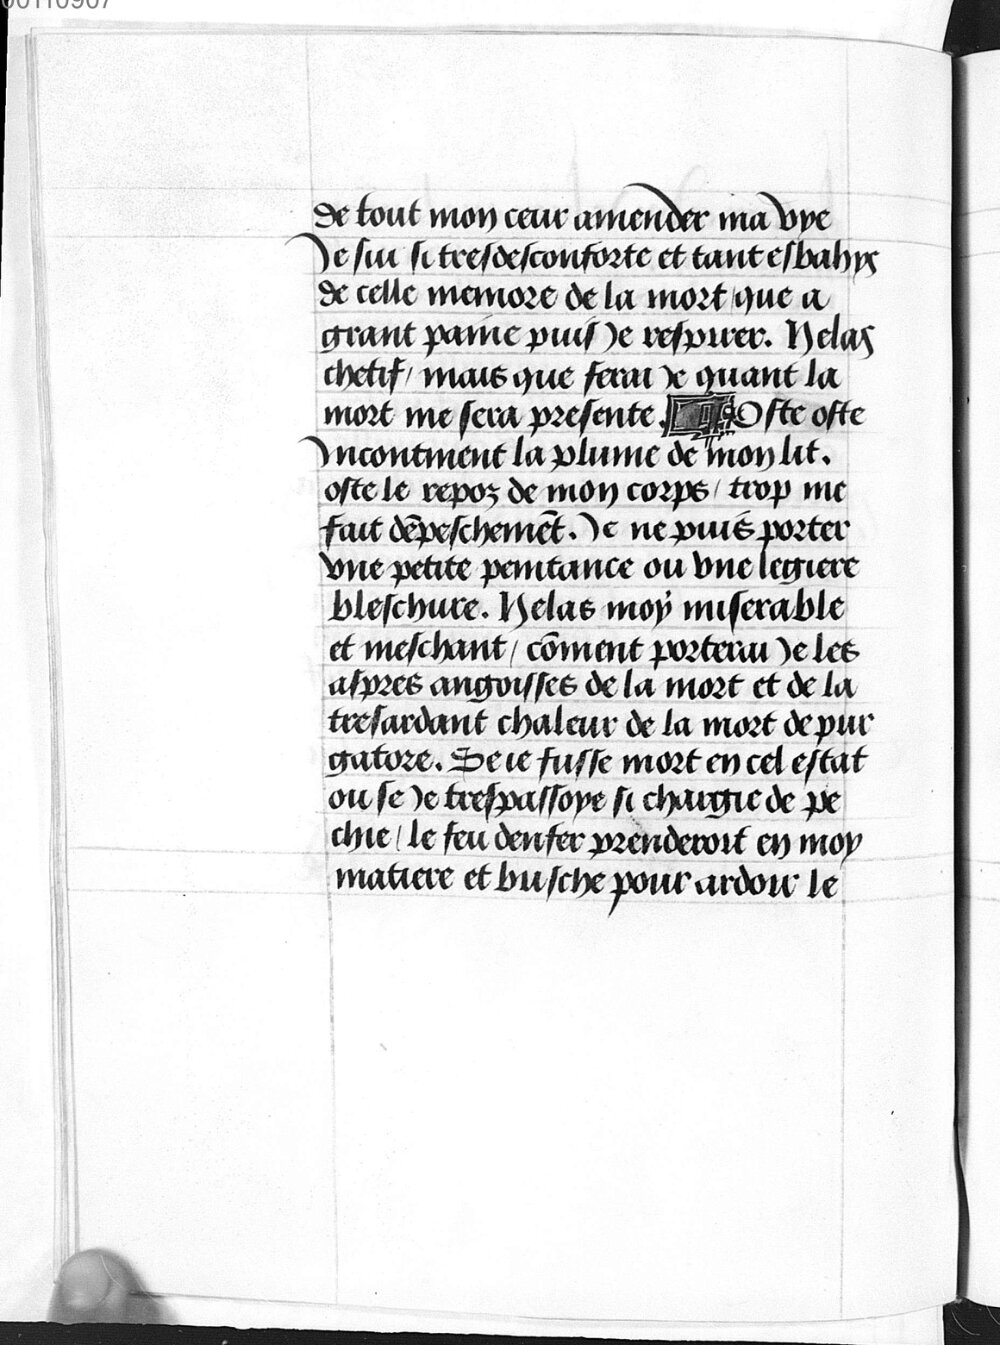 00110907
de tout mon ceur amender ma vye
Je sui si tresdesconforte et tant esbahys
de celle memore de la mort / que a
grant paine puis Je respirer. Helas
chetif / mais que ferai Je quant la
mort me sera presente. Oste oste
Incontinent la plume de mon lit.
oste le repoz de mon corps / trop me
fait dēpeschemēt. Je ne puis porter
vne petite penitance ou vne legiere
bleschure. Helas moy miserable
et meschant / cōment porterai Je les
aspres angoisses de la mort et de la
tresardant chaleur de la mort de pur
gatore. Se ie fusse mort en cel estat
ou se Je trespassoye si chargie de pe
chie / le feu denfer prenderoit en moy
matiere et busche pour ardoir le